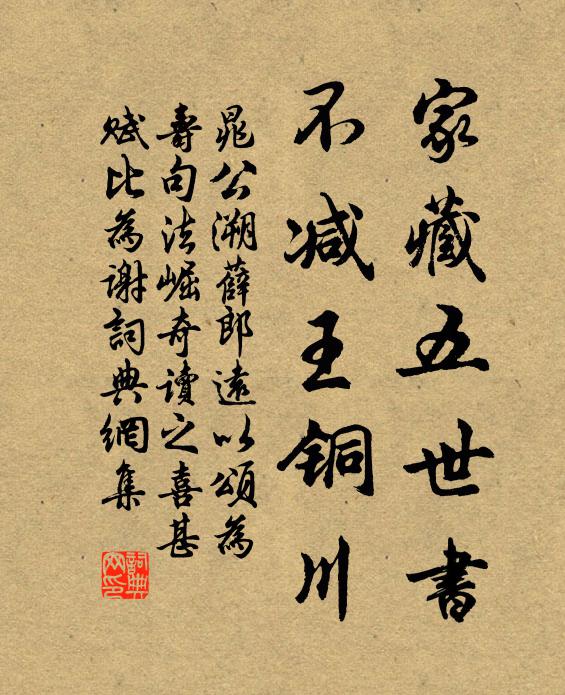 家藏五世書
不减王铜川
晁公溯薛郎遠以頌為
壽句法崛奇讀之喜甚
賦比為謝詞典網集
詞典
网印